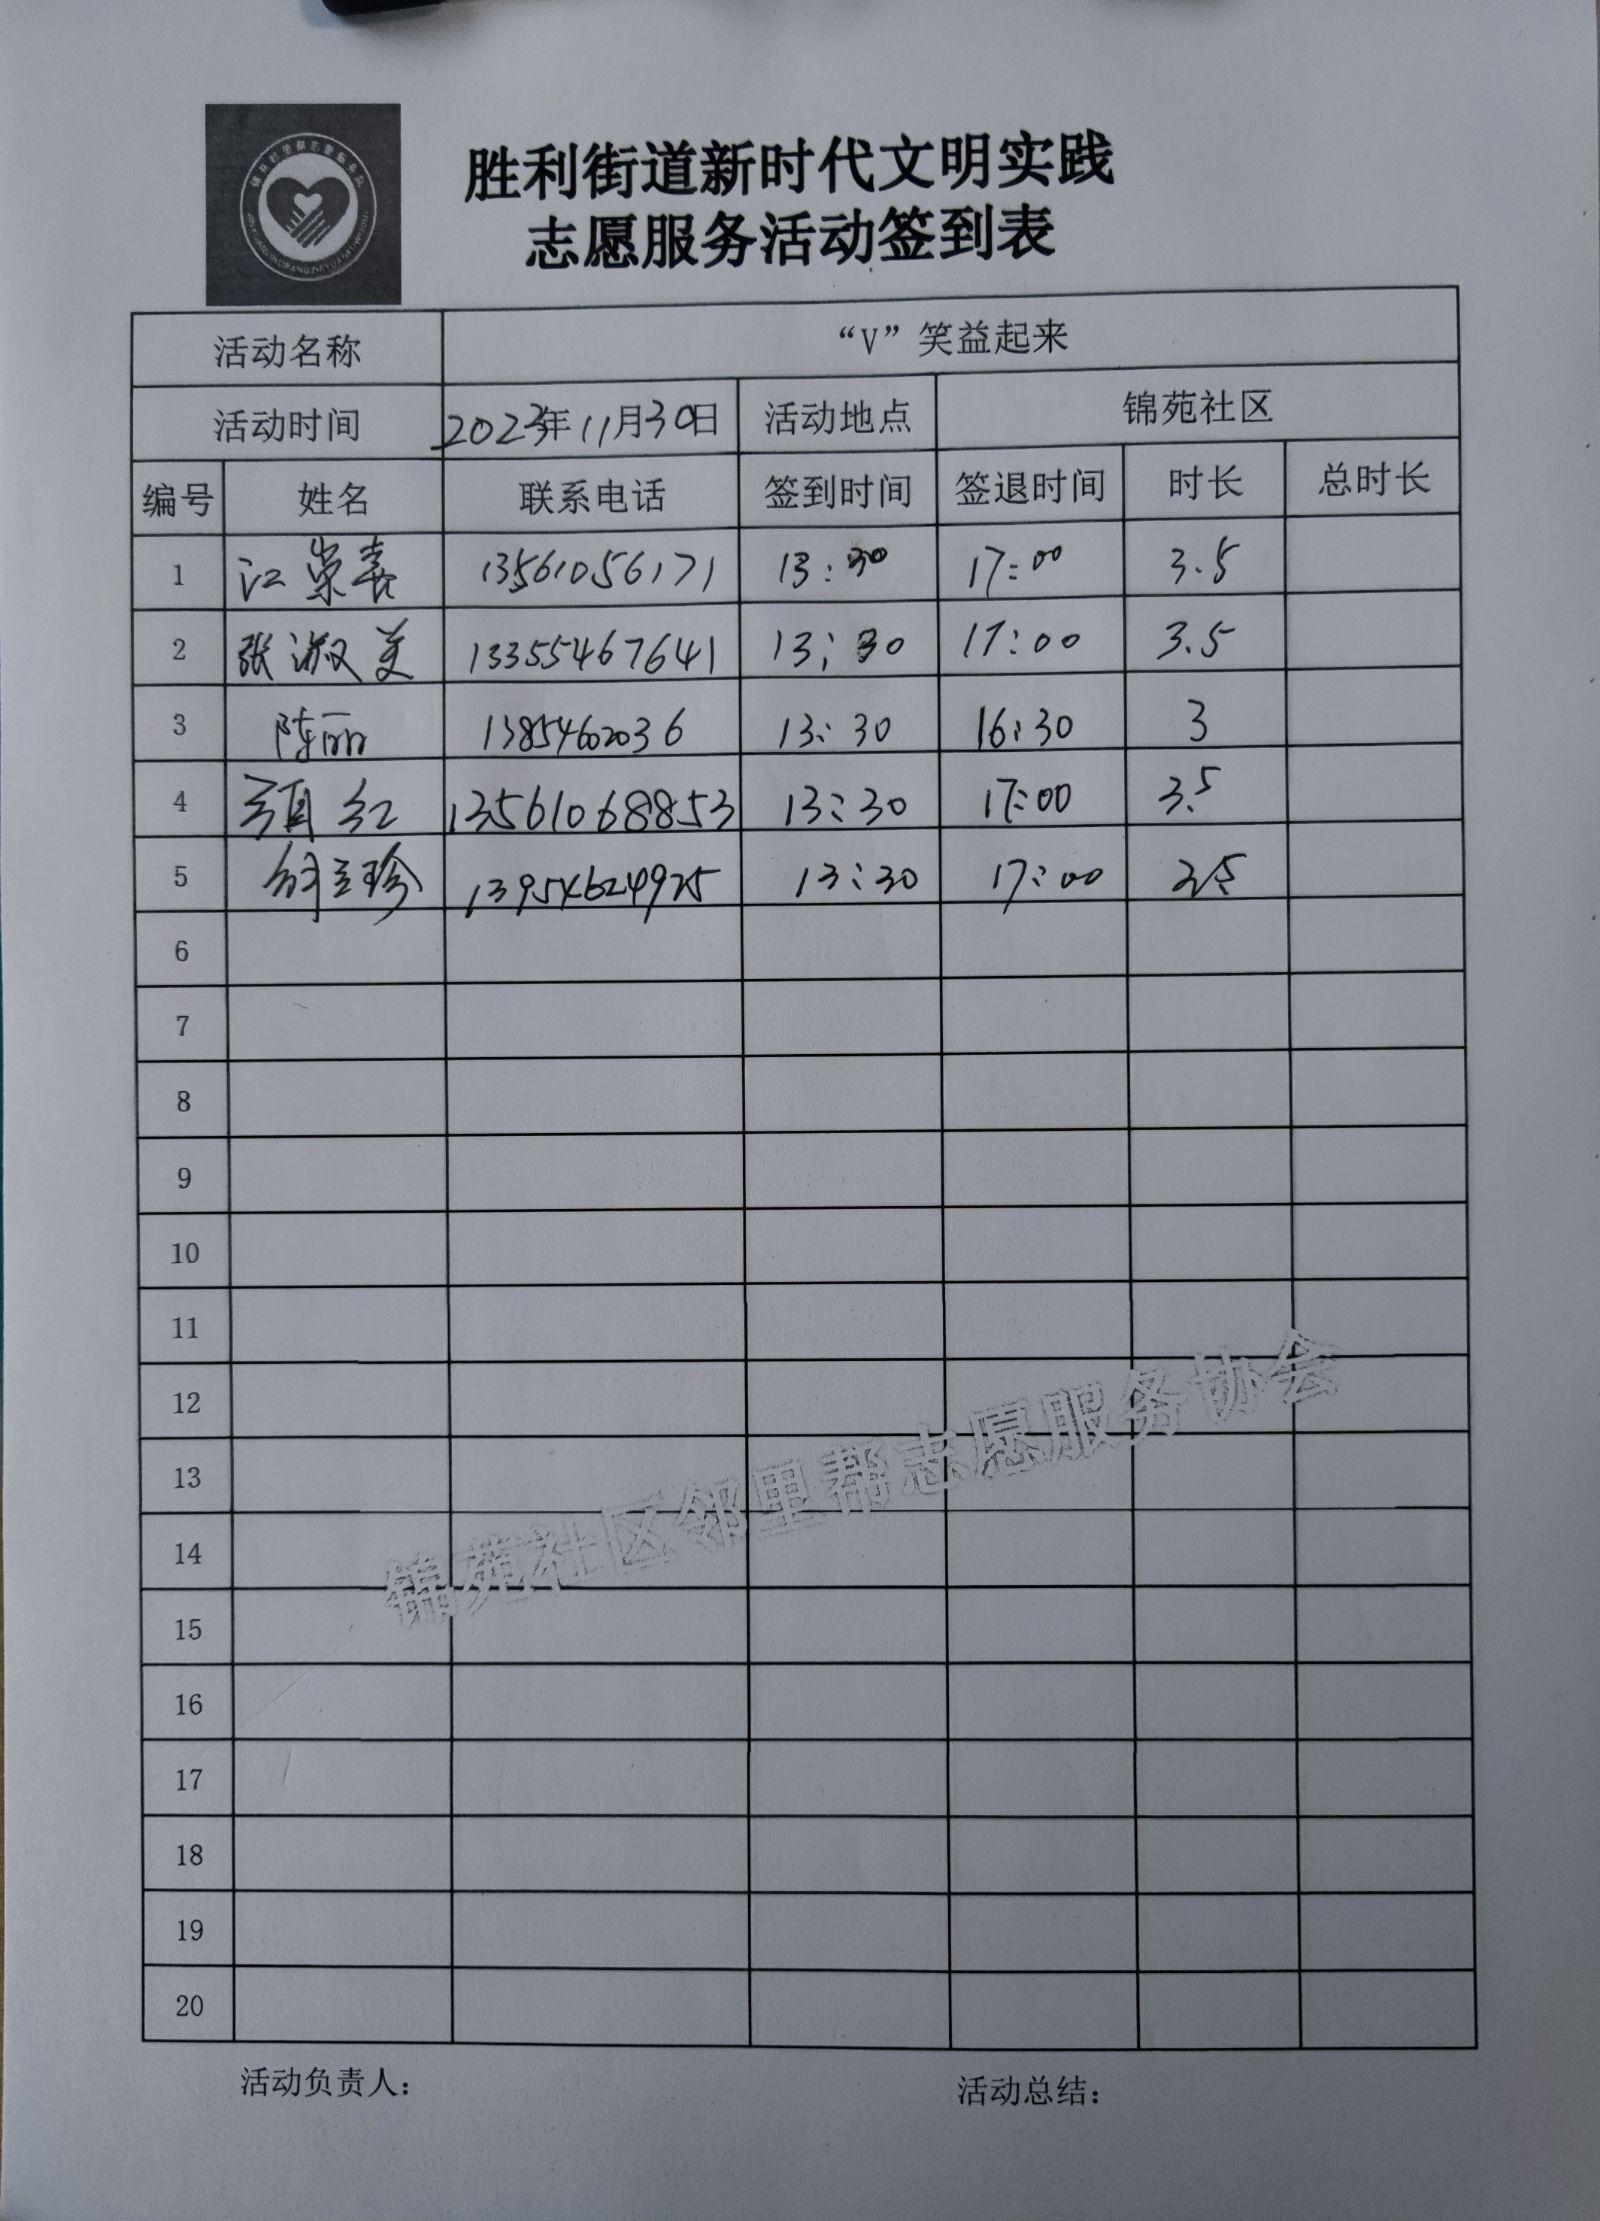 胜利街道新时代文明实践
志愿服务活动签到表
活动名称 “V”笑益起来
活动时间 2023年11月30日 活动地点 锦苑社区
编号 姓名 联系电话 签到时间 签退时间 时长 总时长
1 江崇喜 13561056171 13:30 17:00 3.5
2 张淑美 13355467641 13:30 17:00 3.5
3 陈丽 13854602036 13:30 16:30 3
4 红 13561068853 13:30 17:00 3.5
5 13954624925 13:30 17:00 3.5
6
7
8
9
10
11
12
13
14
15
16
17
18
19
20
锦苑社区邻里帮志愿服务协会
活动负责人: 活动总结: